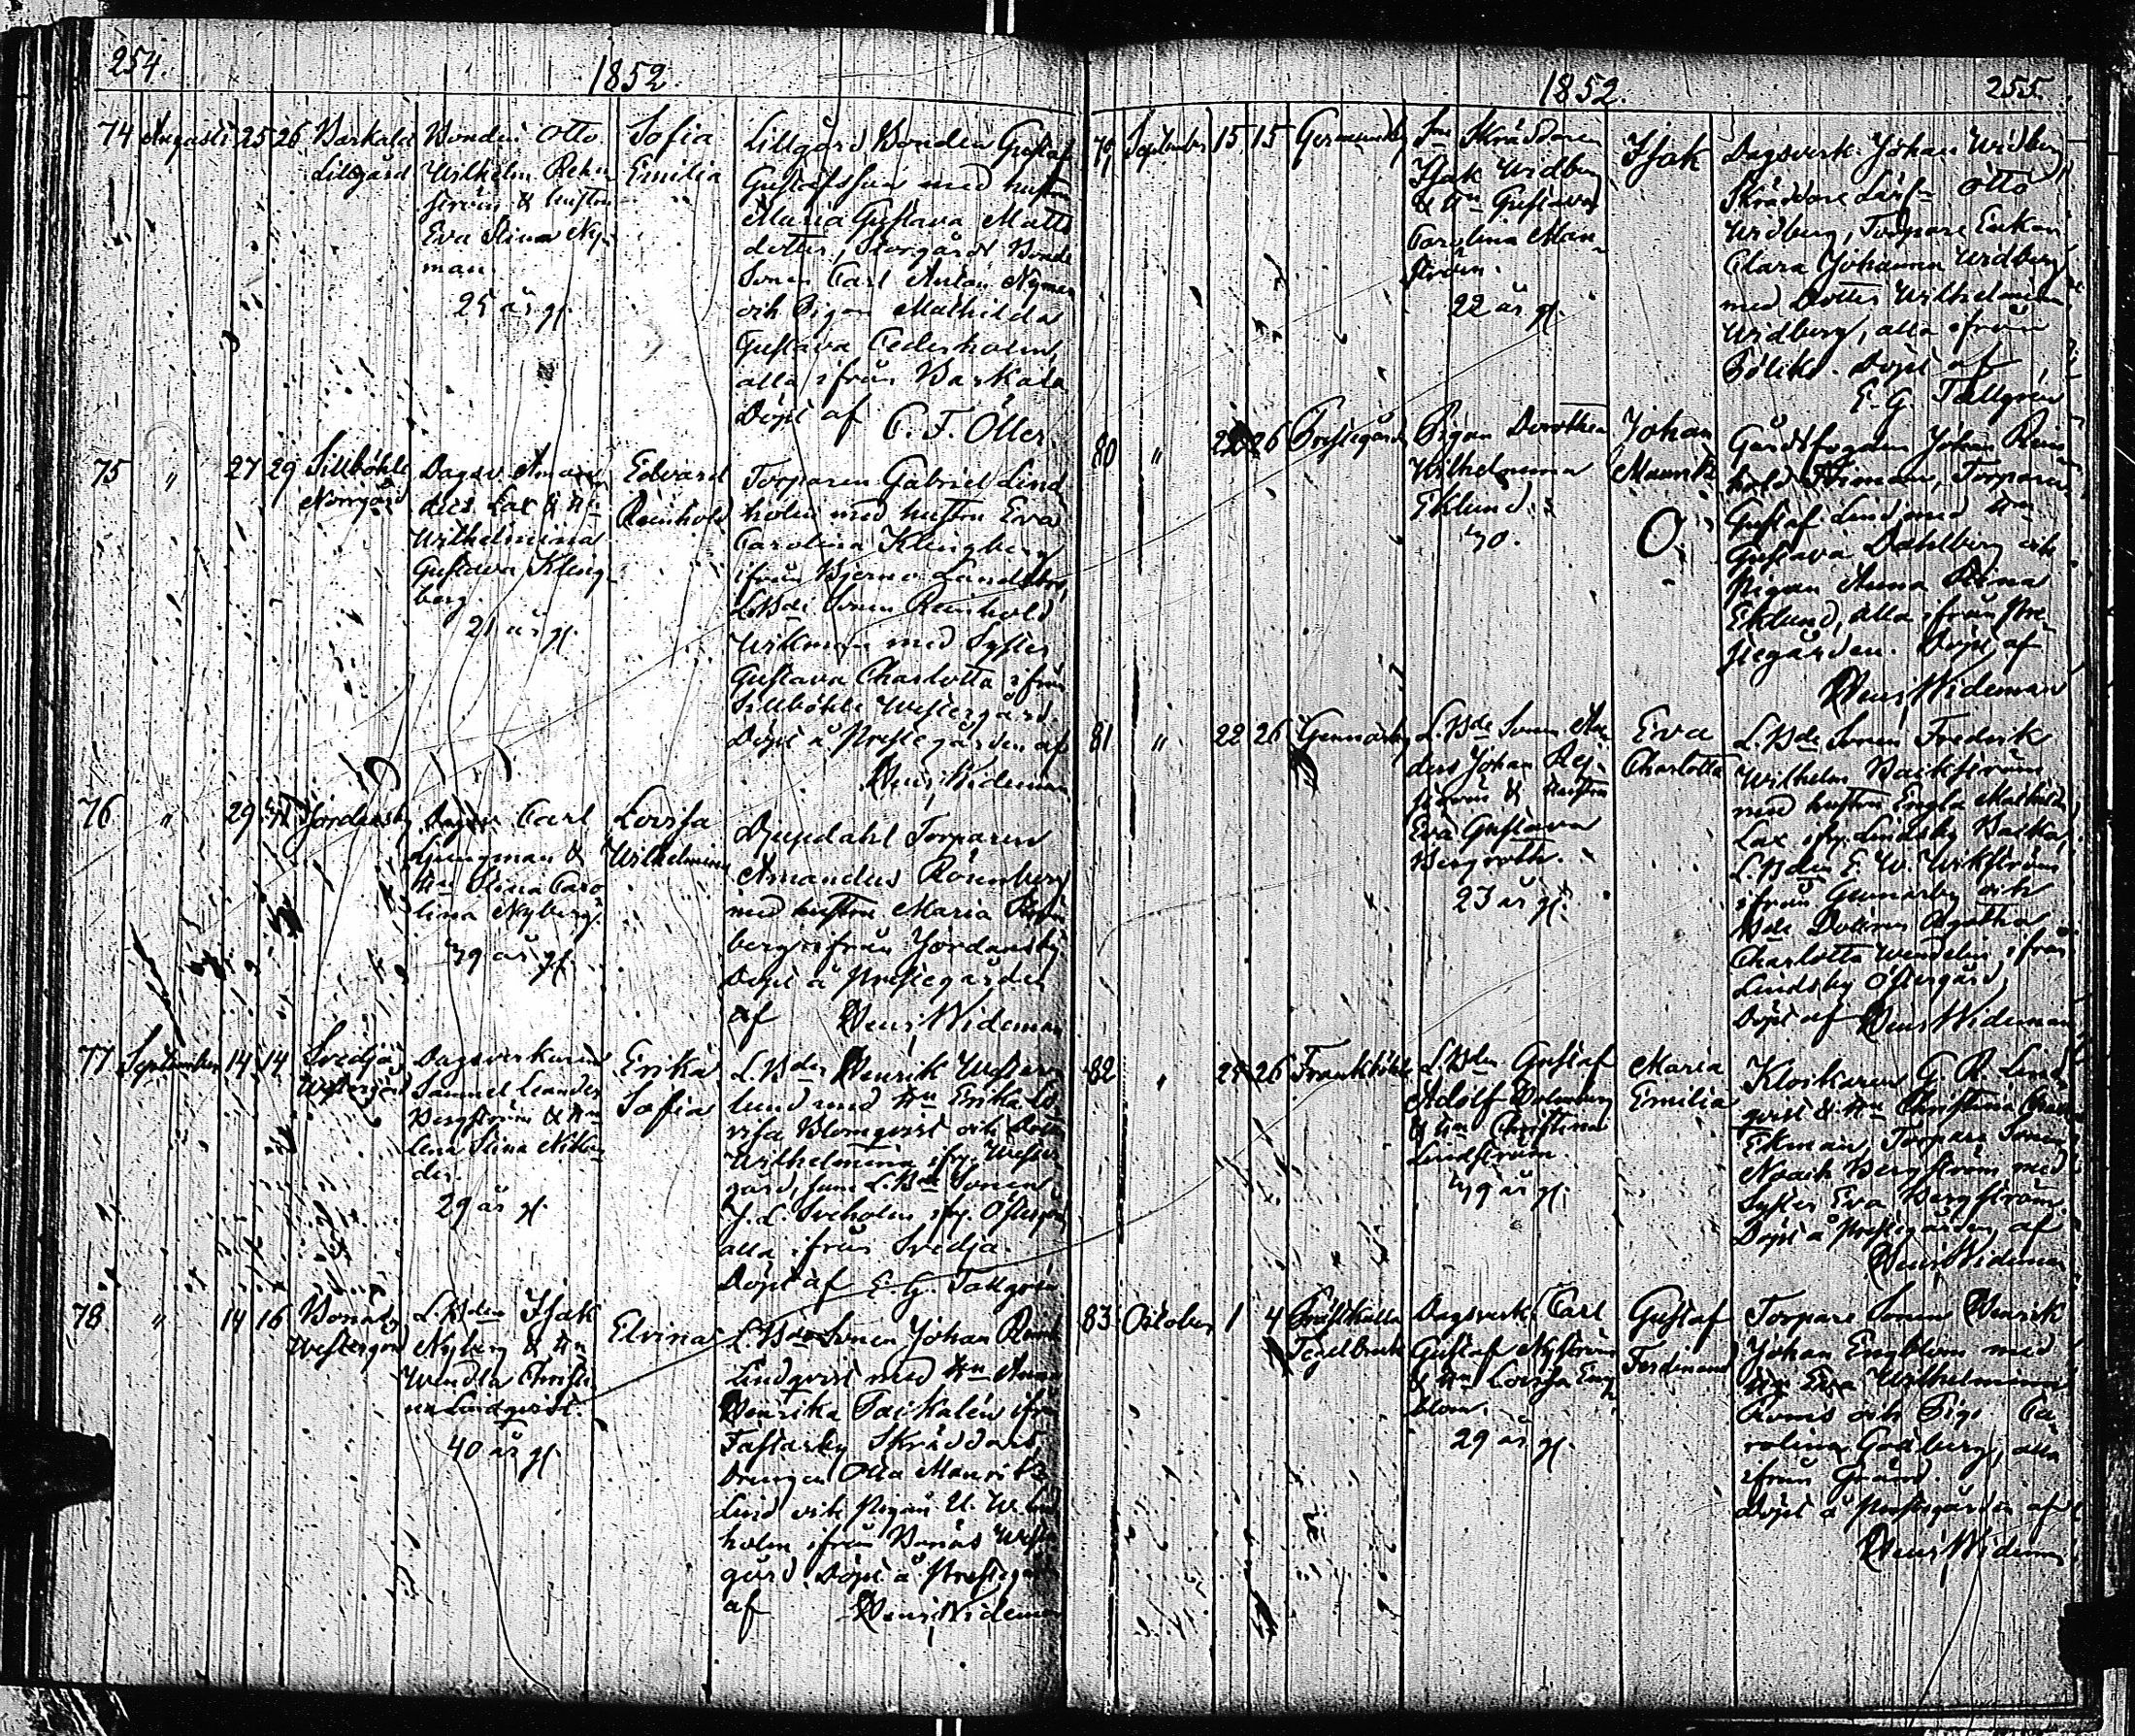 254.
1852.
74 Augusti 25 26 Barkala
Lillgård
Bonden Otto
Wilhelm
& hustru
Eva Stina Ny-
man.
25 år gl.
Sofia
Emilia
Lillgård Bonden Gustaf
Gustafsson med hustru
Maria Gustava Matts
dotter, Storgård Bonde
Sonen Carl Anton Nyman
och Pigan Mathilda
Gustava Cederholm,
alla ifrån Barkala
Döpt af C. F. Öller.
75 " 27 29 Sillböhle
Norrgård
Dagsv. Aman
dus Lax & Hn
Wilhelmina
Gustava Kling-
berg.
21 år gl.
Edvard
Reinhold
Torparen Gabriel Lind
holm med hustru Eva
Carolina Klingberg
ifrån Bjerno Landsbo,
L.Bde Sonen Reinhold
Wikman med Syster
Gustava Charlotta ifrån
Sillböhle Westergård.
Döpt å Prestegården af
Henr. Wideman
76 " 29 Jordansby
Carl
Ljungman &
Hn Stina Caro
lina Nyberg.
39 år gl.
Lovisa
Wilhelmina
Djupdahl Torparen
Amandus Rosenberg
med hustru Maria
berg ifrån Jordansby
Döpt å Prestegården
af Henr. Wideman
77 September 14 14 Svedja
Westergård
Dagsverkaren
Samuel Leander
Bergström & Hn
Lena Stina
29 år gl.
Erika
Sofia
L.Bden Henrik Wester
lund med Hn Erika Lo
visa Blomqvist och
Wilhelmina ifr. Wester
gård, samt L.Bde Sonen
ifr. Östergård
alla ifrån Svedja.
Döpt af E. G. Tallgren
78 " 14 16 Bonäs
Westergård
L.Bden Isak
Nyberg & Hn
Wendla Christi
na Lindqvist.
40 år gl.
Elvina
L.Bde Sonen Johan
Lindqvist med Hn Anna
Henrika ifrån
Fastarby Skräddare
Drengen Otto Mauritz
Lind och Pigan U. W. Lind
holm ifrån Bonäs West
gård. Döpt å Prestegården
af Henr. Wideman
1852.
255.
79 September 15 15 Germundsby
Sn Skräddare
Isak Widberg
& Hn Gustava
Carolina Man-
ström.
22 år gl.
Isak
Dagsverk. Johan Widberg,
Skräddare Lärl. Otto
Widberg, Torpare Enkan
Clara Johanna Widberg
med Dotter Wilhelmina
Widberg, alla ifrån
Böliks. Döpt af
E. G. Tallgren
80 " 26 Prestegården
Pigan Dorothea
Wilhelmina
Eklund.
30.
Johan
Mauritz
O.
Gårdsfogden Johan Rein
hold Torparen
Gustaf Lind med Hn
Gustava Dahlberg och
Pigan Anna Stina
Eklund, alla ifrån Pre-
stegården. Döpt af
Henr. Wideman
81 " 22 26 Gunnarsby
L.Bde Sonen An
ders Johan
& hustru
Eva Gustava
Bergroth.
23 år gl.
Eva
Charlotta
L.Bde Sonen Fredrik
Wilhelm Backström
med hustru Engla Mathilda
Lax ifr. Lindsby Backa,
L.Bden E. W. Wikström
ifrån Gunnarsby och
Bde Dottren Agatha
Charlotta Wendelin ifrån
Lindsby Östergård,
Döpt af Henr. Wideman
82 " 26 Frankböhle
L.Bden Gustaf
Adolf Holmberg
& Hn Christina
Lindström.
39 år gl.
Maria
Emilia
Klockaren G. R. Lind
qvist & Hn Christina
Ekman, Torpare Sonen
Noack Bergström med
Syster Eva Bergström.
Döpt å Prestegården af
Henr. Wideman
83 October 1 4
Tegelbruk
Dagsverk. Carl
Gustaf Nyström
& Hn Lovisa Eng
blom.
29 år gl.
Gustaf
Ferdinand
Torpare Sonen Henrik
Johan Engblom med
Hn Eva Wilhelmina
och Pig. Ca
rolina Godberg, alla
ifrån Gränd.
Döpt å Prestegården af
Henr. Wideman